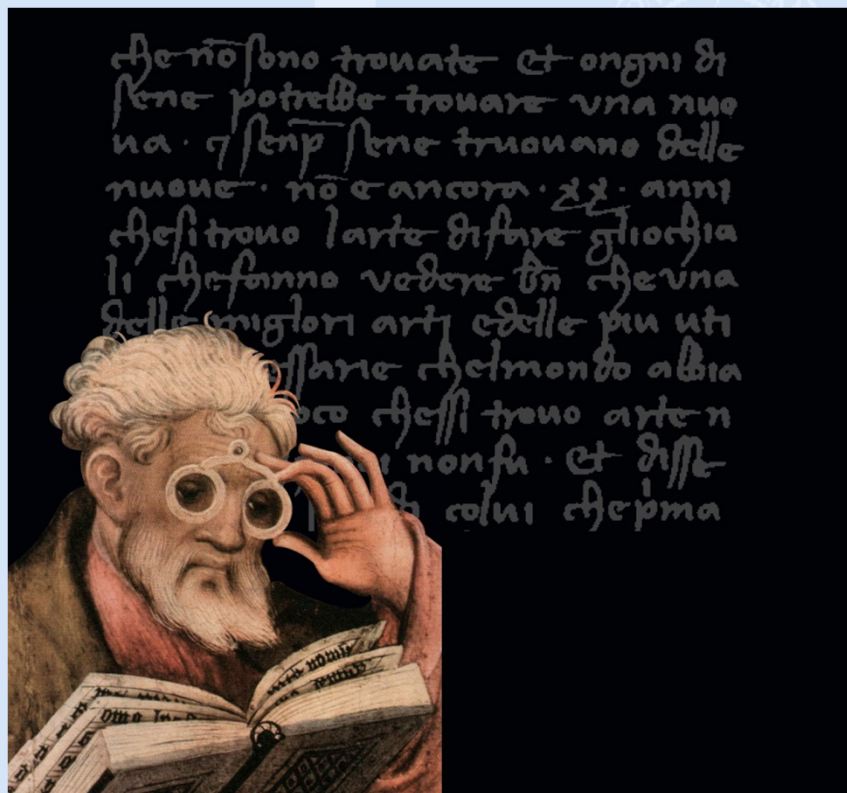 che nō sono trouate et ongni di
sene potrebbe trouare vna nuo
ua · ⁊ senp̄ sene truouano delle
nuoue · nō e ancora · xx · anni
chesi trouo larte difare gliochia
li chefanno vedere bn̄ che vna
delle miglori arti edelle piu uti
ssarie chelmondo abbia
oco chessi trouo arte n
nonfu · et disse
di colui chep̍ma